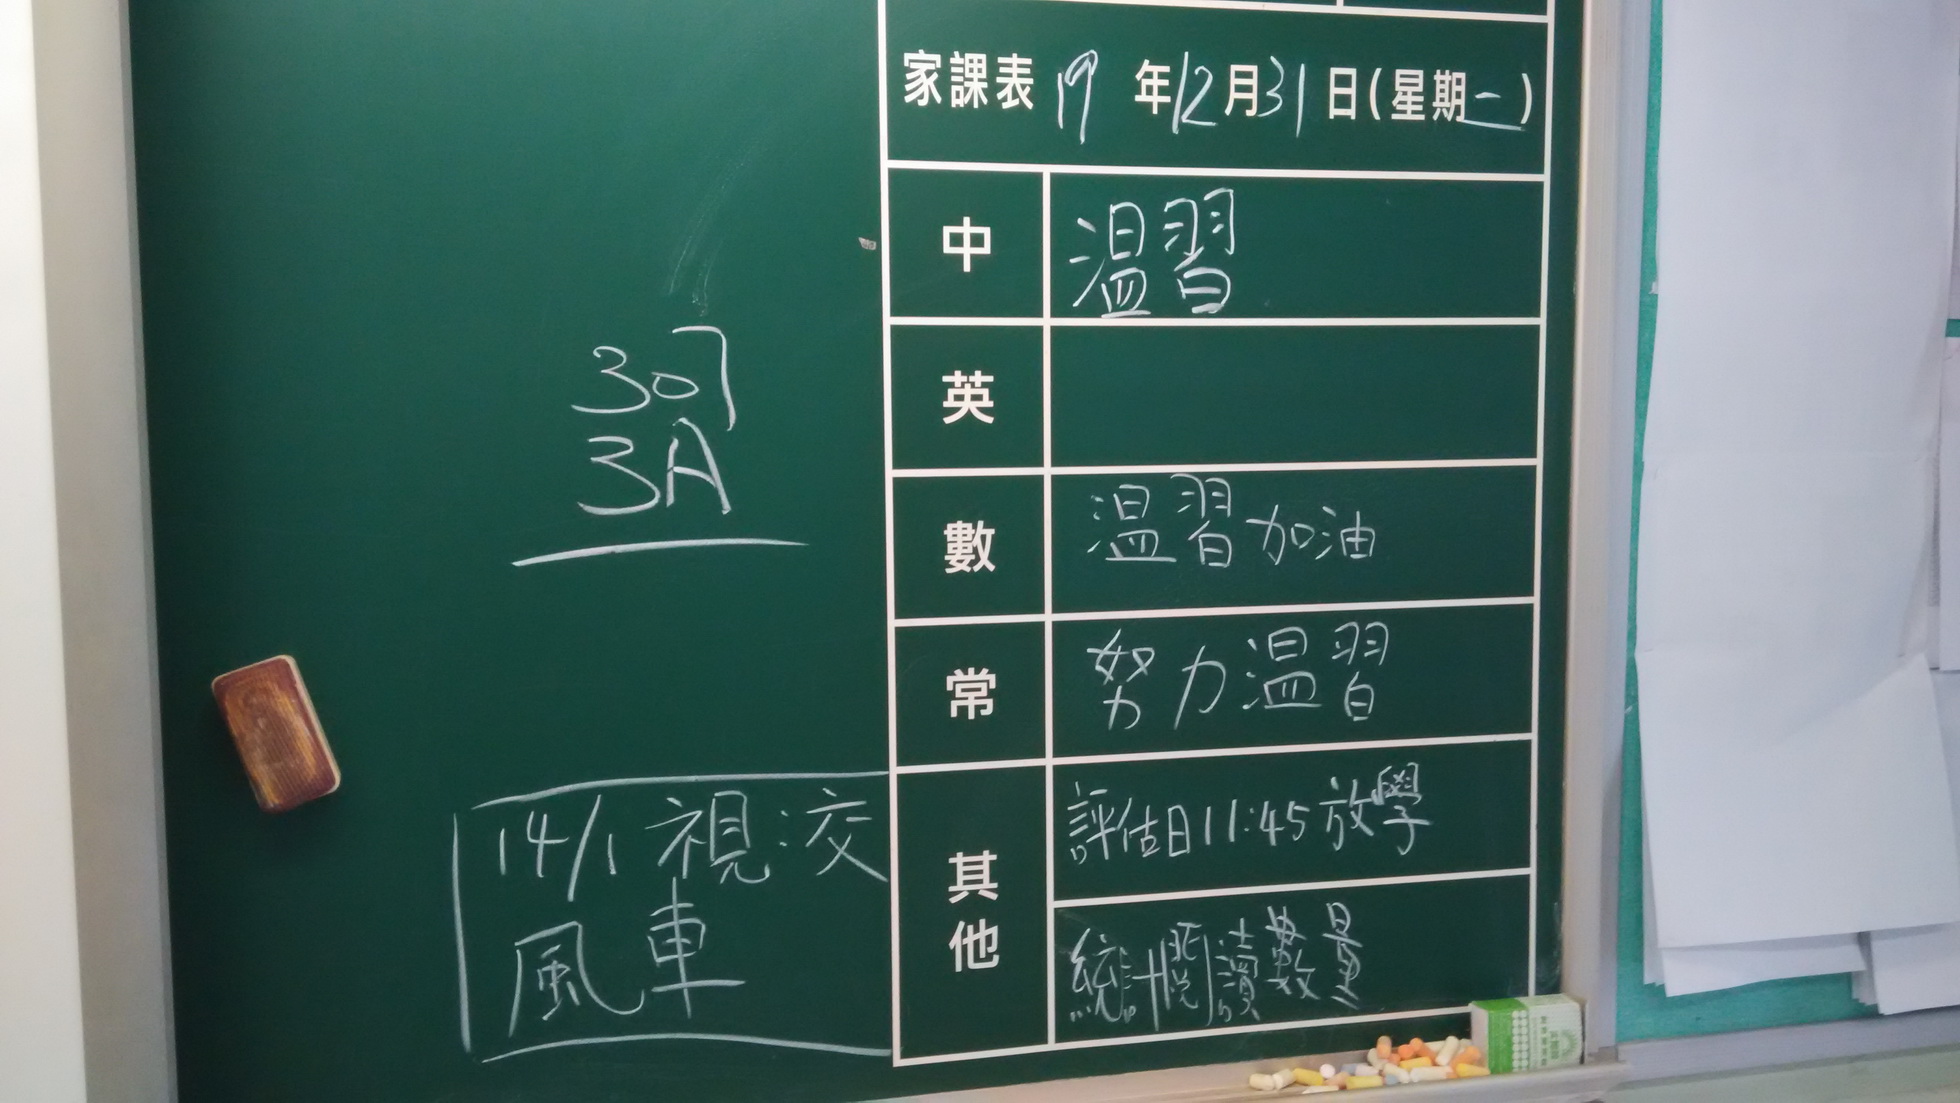 家課表 19 年 12 月 31 日 (星期二)
中 温習
英
數 温習加油
常 努力温習
其他
評估日 11:45 放學
統計閱讀數量
307
3A
14/1 視:交
風車